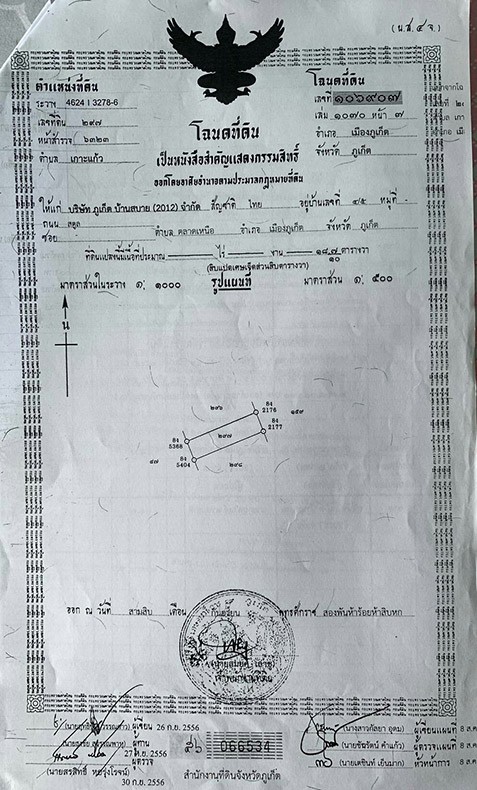 (น.ส.๔ จ.)
ตำแหน่งที่ดิน
ระวาง 4624 I 3278-6
เลขที่ดิน ๒๙๗
หน้าสำรวจ ๖๓๒๓
ตำบล เกาะแก้ว
โฉนดที่ดิน
เลขที่ ๑๐๖๙๐๗
เล่ม ๑๐๗๐ หน้า ๗
อำเภอ เมืองภูเก็ต
จังหวัด ภูเก็ต
โฉนดที่ดิน
เป็นหนังสือสำคัญแสดงกรรมสิทธิ์
ออกโดยอาศัยอำนาจตามประมวลกฎหมายที่ดิน
ให้แก่ บริษัท ภูเก็ต บ้านสบาย (2012) จำกัด สัญชาติ ไทย อยู่บ้านเลขที่ ๔/๕ หมู่ที่ -
ถนน สตูล
ซอย - ตำบล ตลาดเหนือ อำเภอ เมืองภูเก็ต จังหวัด ภูเก็ต
ที่ดินแปลงนี้มีเนื้อที่ประมาณ - ไร่ - งาน ๑๘ ๗/๑๐ ตารางวา
(สิบแปดเศษเจ็ดส่วนสิบตารางวา)
มาตราส่วนในระวาง ๑: ๑๐๐๐ รูปแผนที่ มาตราส่วน ๑: ๕๐๐
น
๒๙๖
84
2176
๑๕๙
84
5368
๒๙๗
84
2177
๔๗
84
5404
๒๙๘
ออก ณ วันที่ สามสิบ เดือน กันยายน พุทธศักราช สองพันห้าร้อยห้าสิบหก
เจ้าพนักงานที่ดิน
ผู้เขียน 26 ก.ย. 2556
ผู้ทาน
27 ก.ย. 2556
ผู้ตรวจ
30 ก.ย. 2556
066534
สำนักงานที่ดินจังหวัดภูเก็ต
(นางสาวกัลยา อุดม) ผู้เขียนแผนที่ 8 ส.ค
(นายชัชรัตน์ คำแก้ว) ผู้ตรวจแผนที่ 8 ส.ค
(นายเดชินท์ เย็นมาก) หัวหน้าการ 8 ส.ค